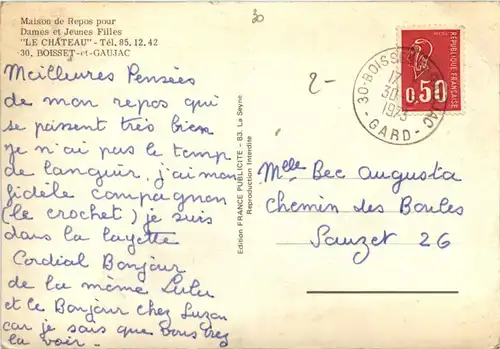 Maison de Repos pour
Dames et Jeunes Filles
"LE CHÂTEAU" - Tél. 85.12.42
30. BOISSET-et-GAUJAC
Meilleures Pensées
de mon repos qui
se passent très bien
je n'ai pas le temp
de languir, j'ai mon
fidèle compagnon
(le crochet) je suis
dans la layette
Cordial Bonjour
de la même Lulu
et le Bonjour chez Luzon
car je sais que vous
la voir.
Edition FRANCE PUBLICITE - 83. La Seyne
Reproduction Interdite
30
2-
30-BOISSET GAUJAC
17
30-
1973
-GARD-
REPUBLIQUE FRANÇAISE
0,50
Melle Bec Augusta
Chemin des Boules
Sauzet 26